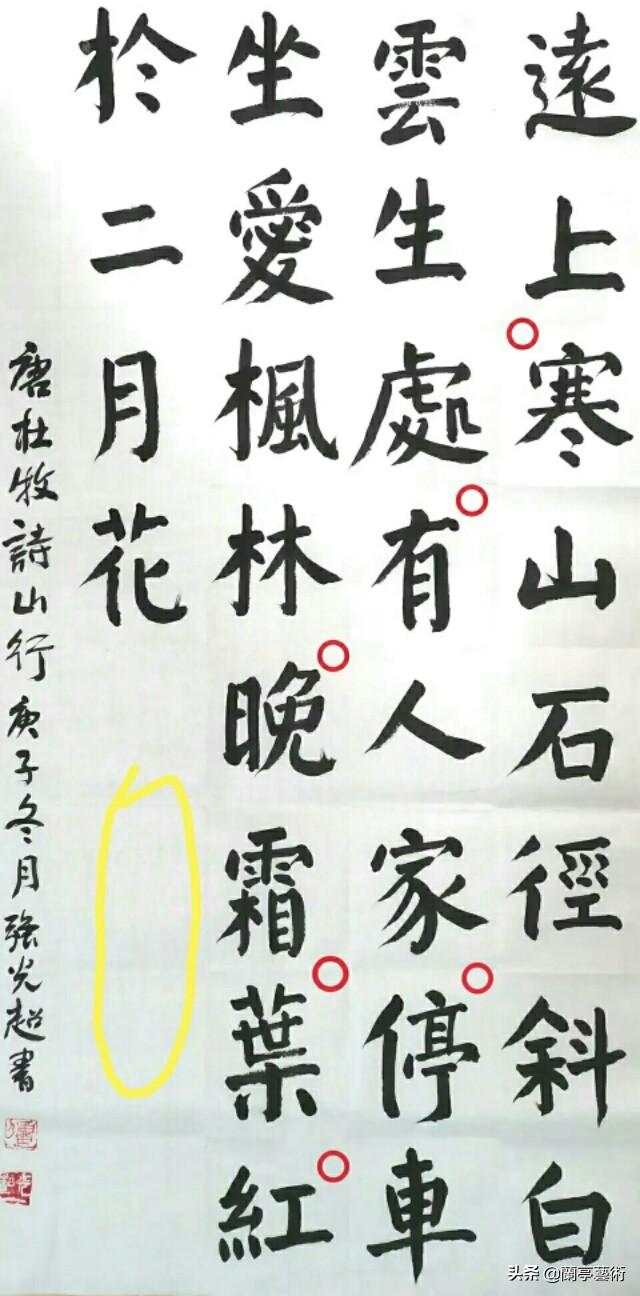 遠上寒山石徑斜白
雲生處有人家停車
坐愛楓林晚霜葉紅
於二月花
唐杜牧詩山行庚子冬月强光超書
头条 @蘭亭藝術